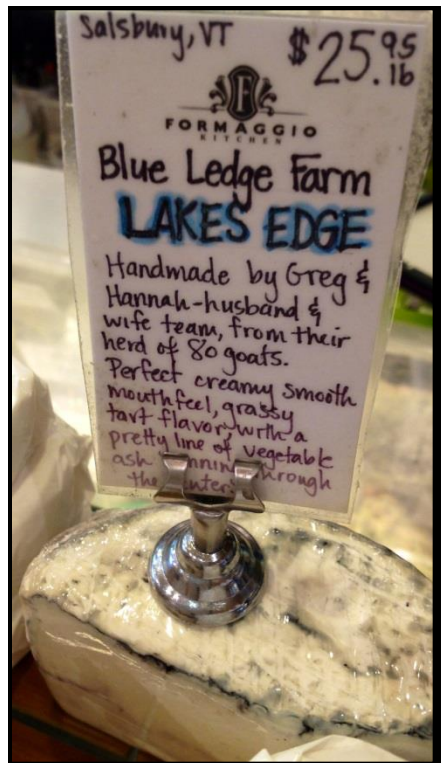 Salsbury, VT
$25.95 lb
F
FORMAGGIO
KITCHEN
Blue Ledge Farm
LAKES EDGE
Handmade by Greg &
Hannah-husband &
wife team, from their
herd of 80 goats.
Perfect creamy smooth
mouthfeel, grassy
tart flavor, with a
pretty line of vegetable
ash through
the